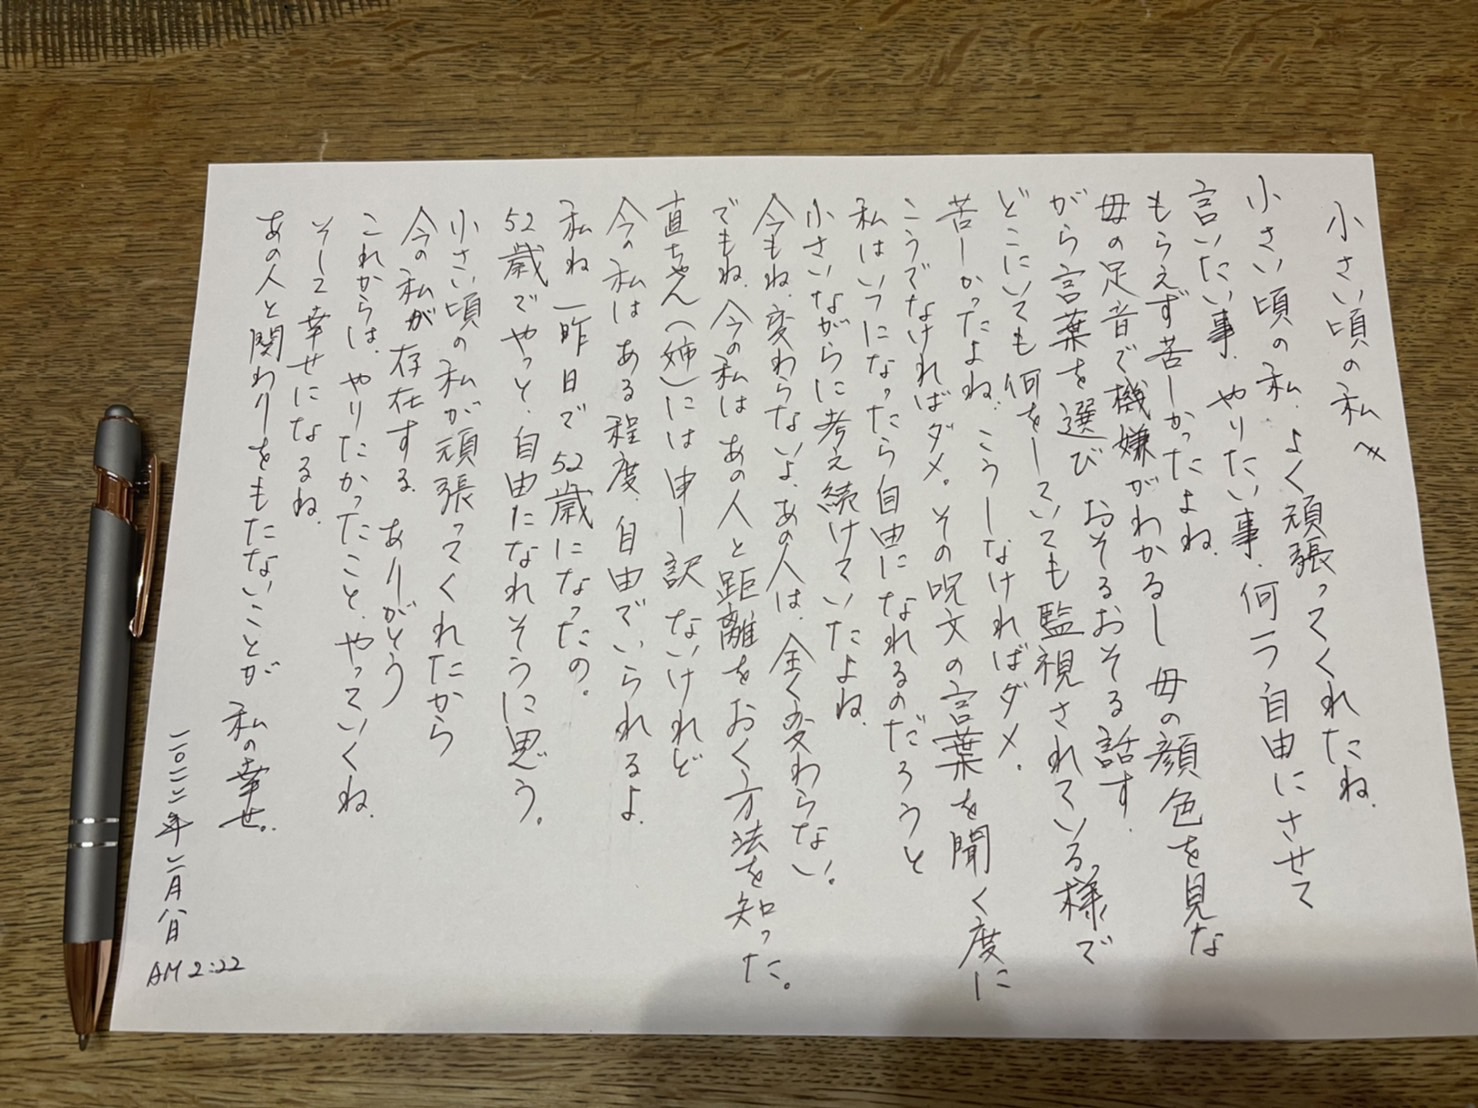 小さい頃の私へ
小さい頃の私、よく頑張ってくれたね、
言いたい事、やりたい事、何一つ自由にさせて
もらえず苦しかったよね、
母の足音で機嫌がわかるし 母の顔色を見な
がら言葉を選び おそるおそる話す、
どこにいても何をしていても監視されている様で
苦しかったよね、こうしなければダメ、
こうでなければダメ。その呪文の言葉を聞く度に
私はいつになったら自由になれるのだろうと
小さいながらに考え続けていたよね、
今もね、変わらないよ、あの人は、全く変わらない。
でもね、今の私は あの人と距離をおく方法を知った。
直ちゃん(姉)には申し訳ないけれど
今の私はある程度、自由でいられるよ、
私ね 一昨日で52歳になったの。
52歳でやっと、自由になれそうに思う。
小さい頃の私が頑張ってくれたから
今の私が存在する、ありがとう
これからは、やりたかったこと、やっていくね、
そして幸せになるね、
あの人と関わりをもたないことが 私の幸せ。
二〇二二年 二月八日
AM 2:22